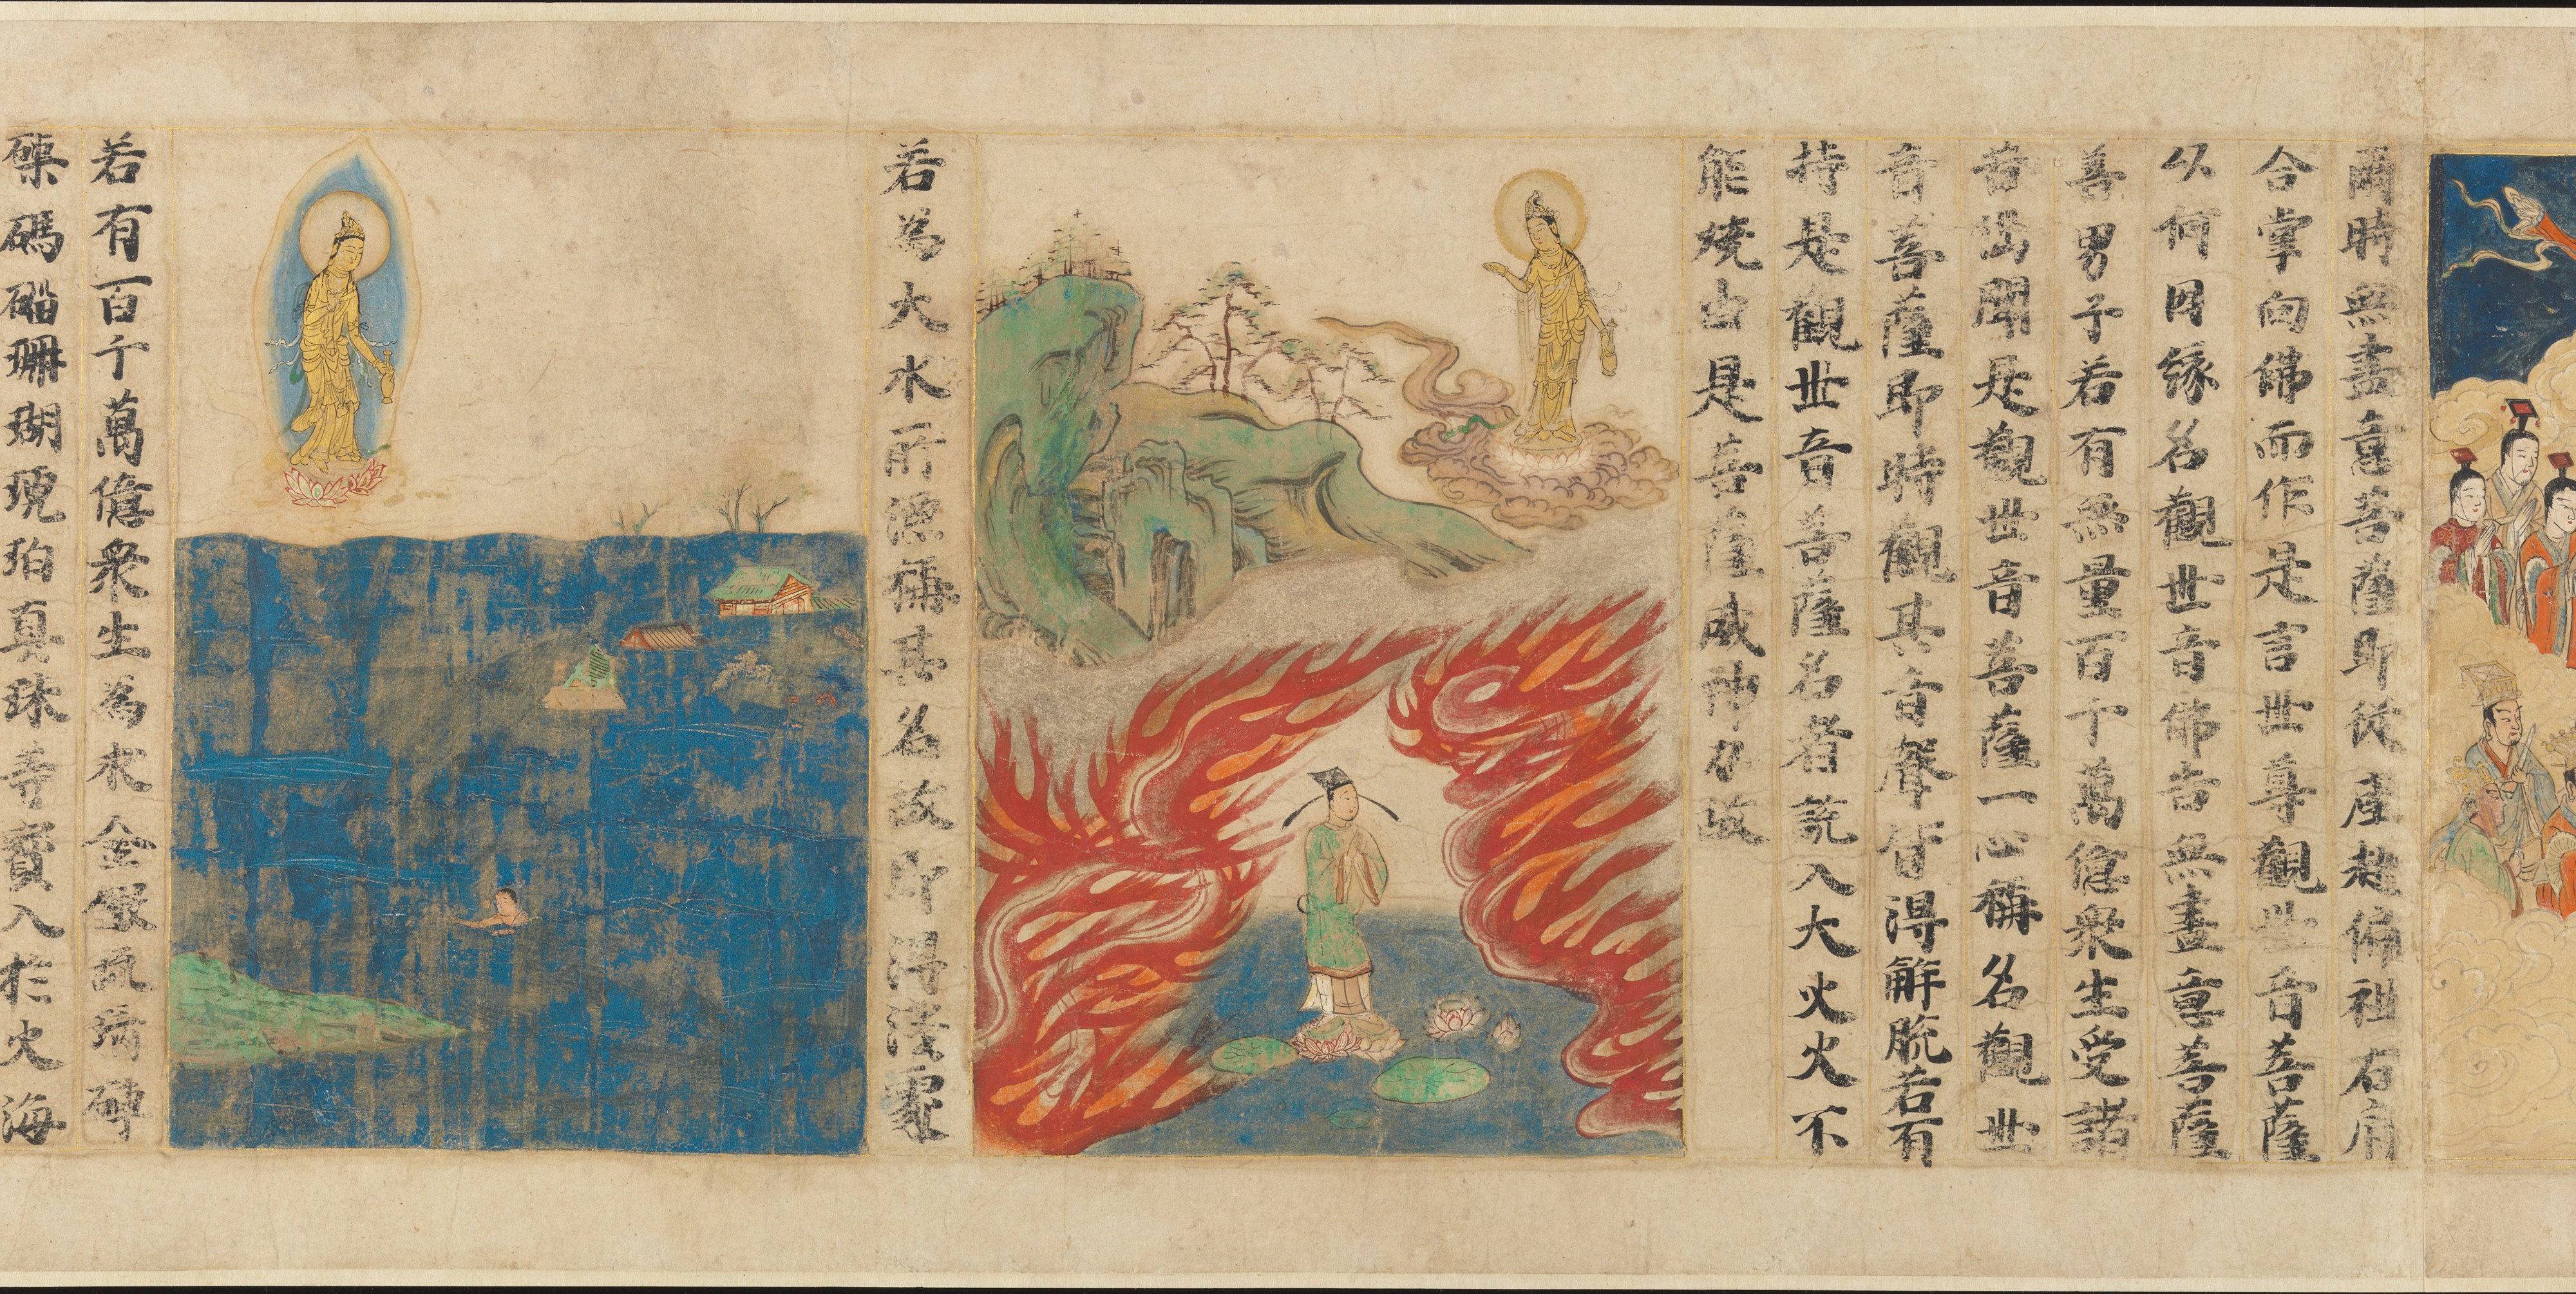 爾時無盡意菩薩即從座起偏袒右肩
合掌向佛而作是言世尊觀世音菩薩
以何因緣名觀世音佛告無盡意菩薩
善男子若有無量百千萬億衆生受諸
苦惱聞是觀世音菩薩一心稱名觀世
音菩薩即時觀其音聲皆得解脫若有
持是觀世音菩薩名者說入大火火不
能燒由是菩薩威神力故
若為大水所漂稱其名故即得淺處
若有百千萬億衆生為求金銀琉璃硨
磲碼碯珊瑚琥珀真珠等寶入於大海